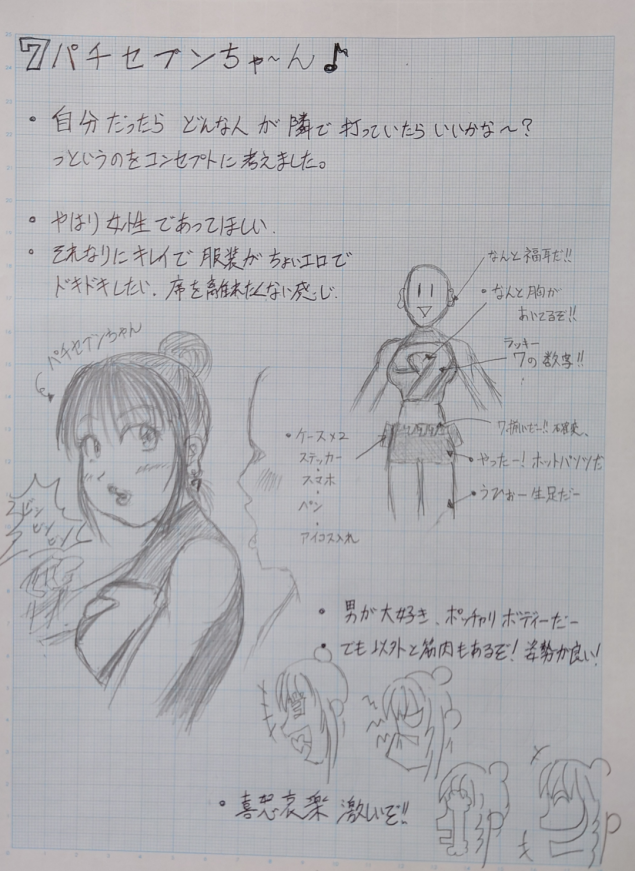 7パチセブンちゃ〜ん♪
・自分だったら どんな人が 隣で 打っていたら いいかな〜?
っというのをコンセプトに考えました。
・やはり 女性であってほしい.
・それなりに キレイで 服装が ちょいエロで
ドキドキしたい. 席を離れたくない感じ.
パチセブンちゃん
なんと福耳だ!!
・なんと胸が
あいてるぞ!!
ラッキー
7の数字!!
7揃いだー!!
・やったー!ホットパンツだ
・うひょー生足だー
・ケース×2
ステッカー
・
スマホ
・
ペン
・
アイコス入れ
・男が大好き、ポッチャリボディーだー
・でも以外と筋肉もあるぞ!姿勢が良い!
・喜怒哀楽 激しいぞ!!